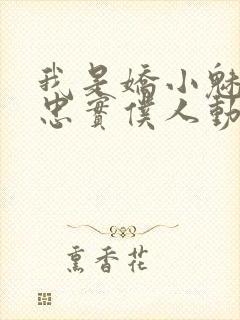 我是嬌小魅
忠實僕人動
熏香花